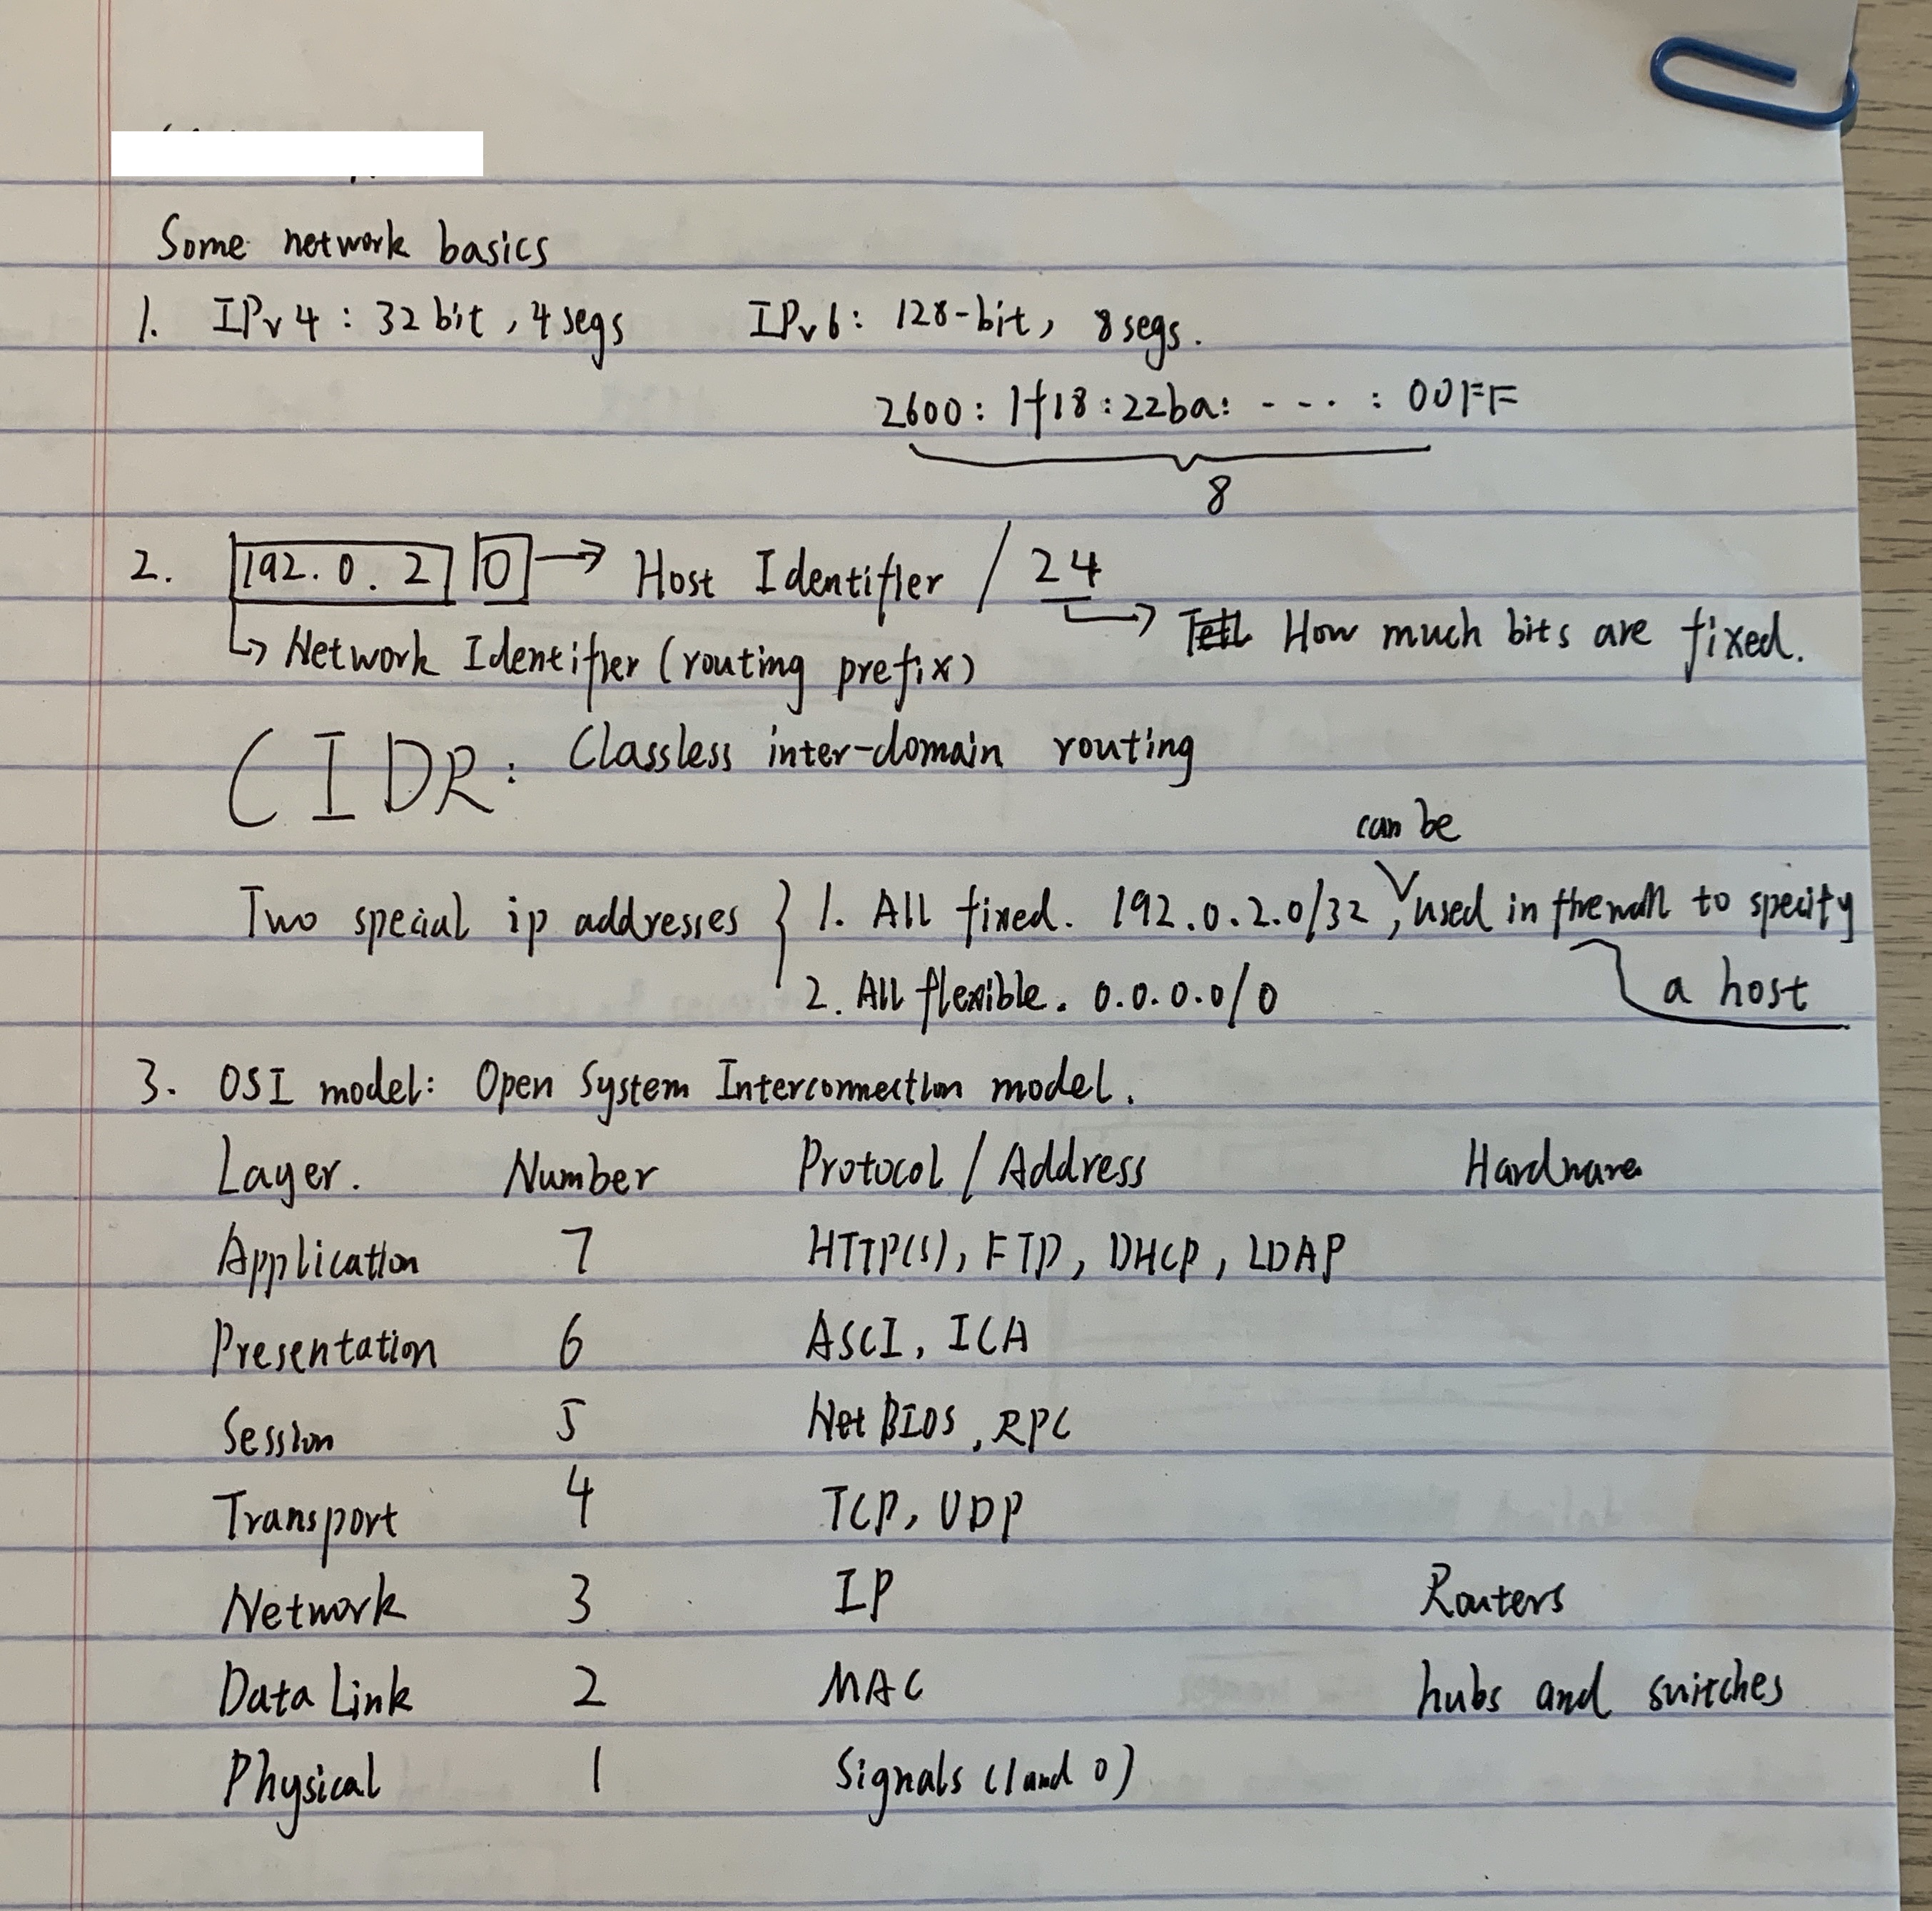 Some network basics
1. IPv4 : 32 bit , 4 segs IPv6 : 128-bit, 8 segs.
2600 : 1f18 : 22ba: - - - · : 00FF
8
2. 192. 0. 2 0 → Host Identifier / 24
↳ Network Identifier (routing prefix) ↳ How much bits are fixed.
CIDR : Classless inter-domain routing
can be
Two special ip addresses } 1. All fixed. 192.0.2.0/32 , used in firewall to specify
a host
2. All flexible. 0.0.0.0/0
3. OSI model: Open System Interconnection model.
Layer. Number Protocol / Address Hardware
Application 7 HTTP(s), FTP, DHCP, LDAP
Presentation 6 ASCI, ICA
Session 5 NetBIOS, RPC
Transport 4 TCP, UDP
Network 3 IP Routers
Data Link 2 MAC hubs and switches
Physical 1 Signals (1 and 0)